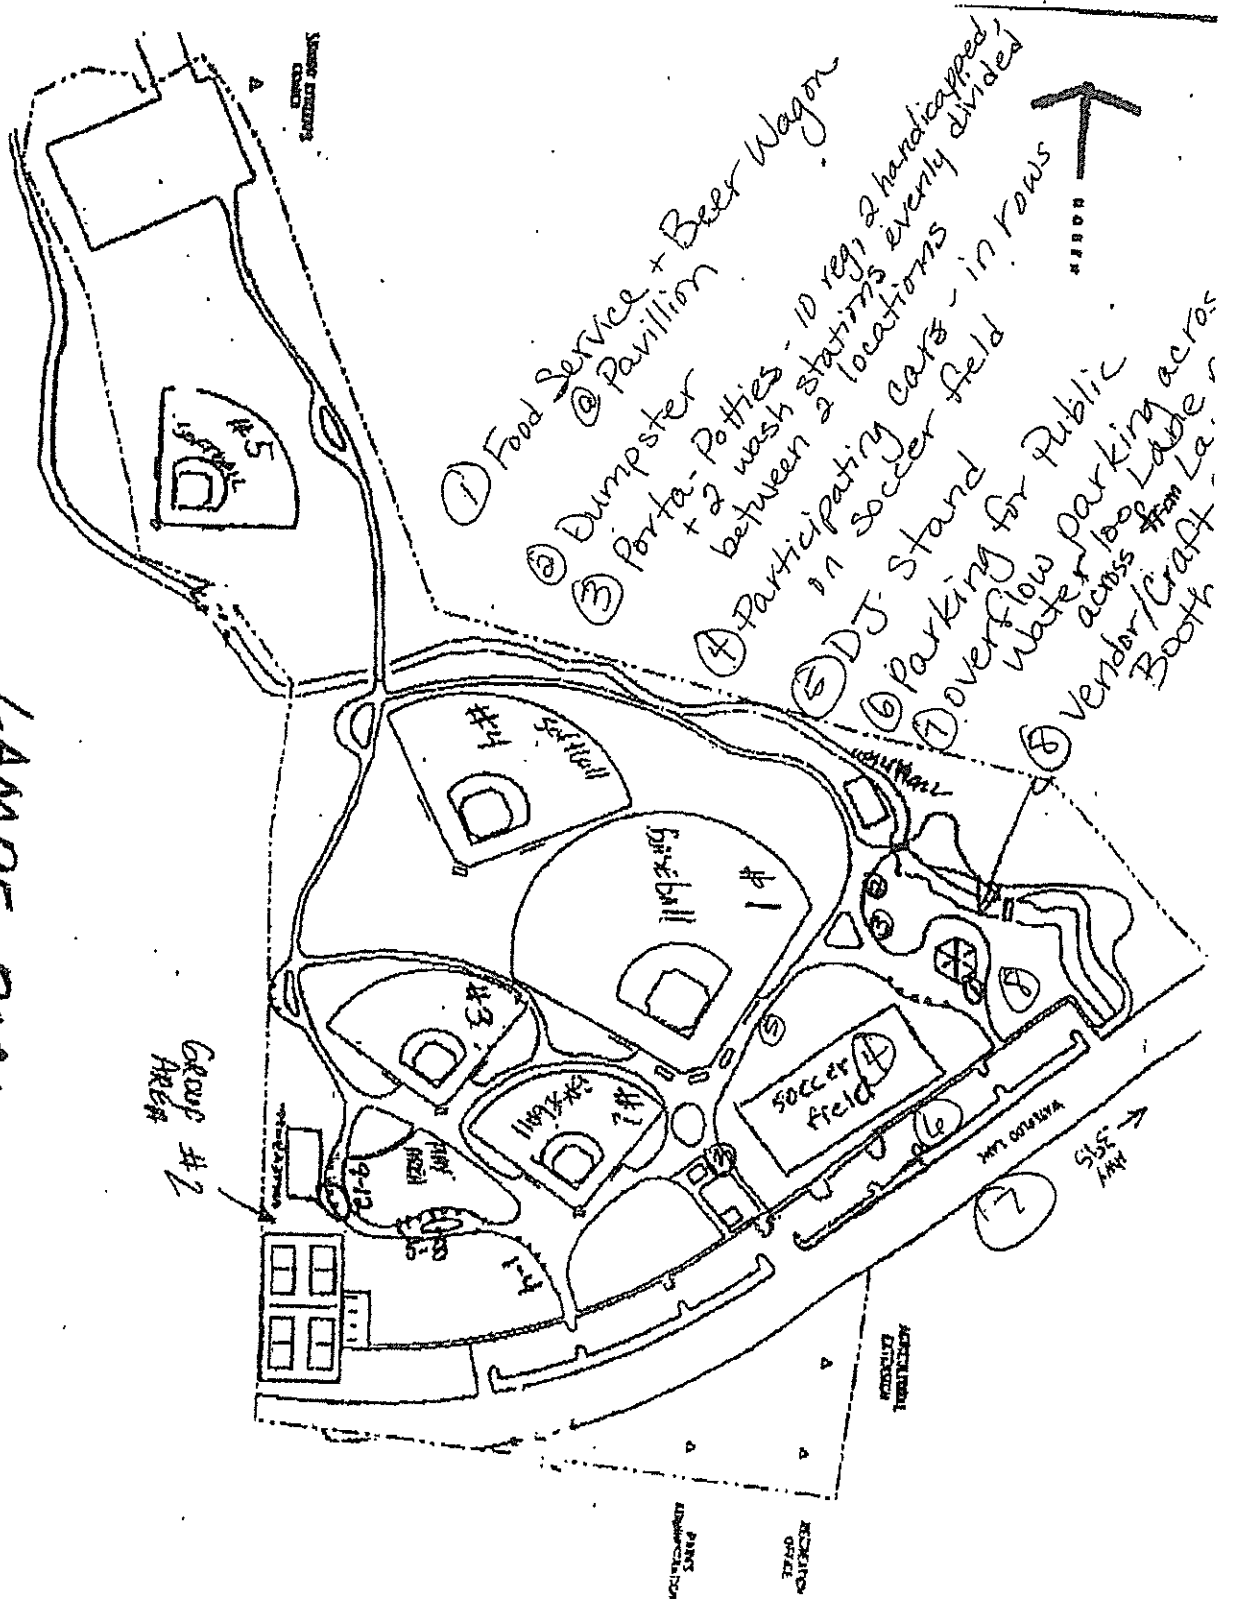 ① Food Service + Beer Wagon
@ Pavillion
② Dumpster
③ Porta-Potties - 10 reg, 2 handicapped,
+ 2 wash stations evenly divided
between 2 locations
④ Participating cars - in rows
on soccer field
⑤ DJ Stand
⑥ Parking for Public
⑦ overflow parking acros
Water loo Lane
across from La
⑧ Vendor/Craft
Booth
NORTH
#5
SOFTBALL
#4
Softball
#1
Baseball
#3
#2
Baseball
②
③
⑧
⑤
soccer
field
④
⑥
③
⑦
WATERLOO LANE
HWY
395
PLAY
AREA
9-12
1-4
GROUP #2
AREA
AGRICULTURAL
EXTENSION
RECREATION
OFFICE
PARKS
ADMINISTRATION